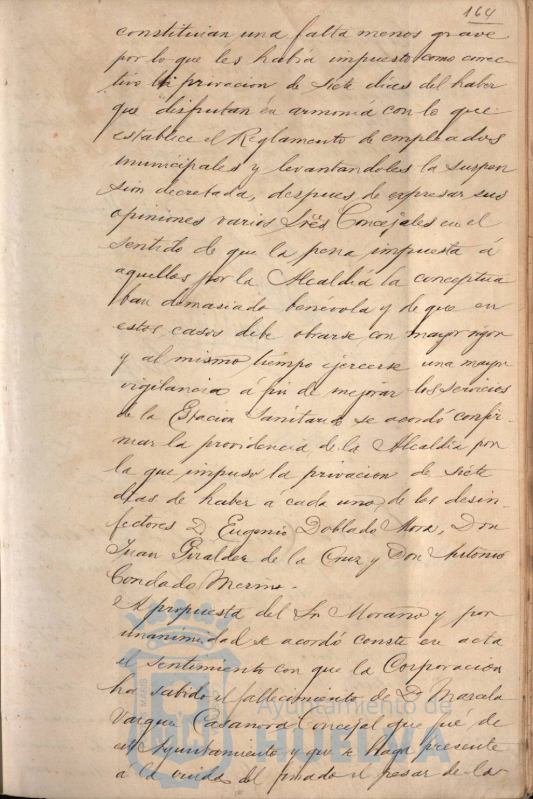 164
constituian una falta menos grave
por lo que les habia impuesto como correc-
tivo la privacion de siete dias del haber
que disfrutan en armonia con lo que
establece el Reglamento de empleados
municipales y levantandoles la suspen
sion decretada, despues de expresar sus
opiniones varios Sres Concejales en el
sentido de que la pena impuesta á
aquellos por la Alcaldia la conceptua
ban demasiado benévola y de que en
estos casos debe obrarse con mayor rigor
y al mismo tiempo ejercerse una mayor
vigilancia á fin de mejorar los servicios
de la Estacion Sanitaria se acordó confir-
mar la providencia de la Alcaldia por
la que impuso la privacion de siete
dias de haber á cada uno de los desin-
fectores D. Eugenio Doblado Mora, Don
Juan Giralder de la Cruz y Don Antonio
Condado Merino.
A propuesta del Sr Moraño y por
unanimidad se acordó conste en acta
el sentimiento con que la Corporacion
ha sabido el fallecimiento de D. Marcelo
Vargas Casanova Concejal que fue de
este Ayuntamiento y que se haga presente
a la viuda del finado el pesar de la
Ayuntamiento de
HUELVA